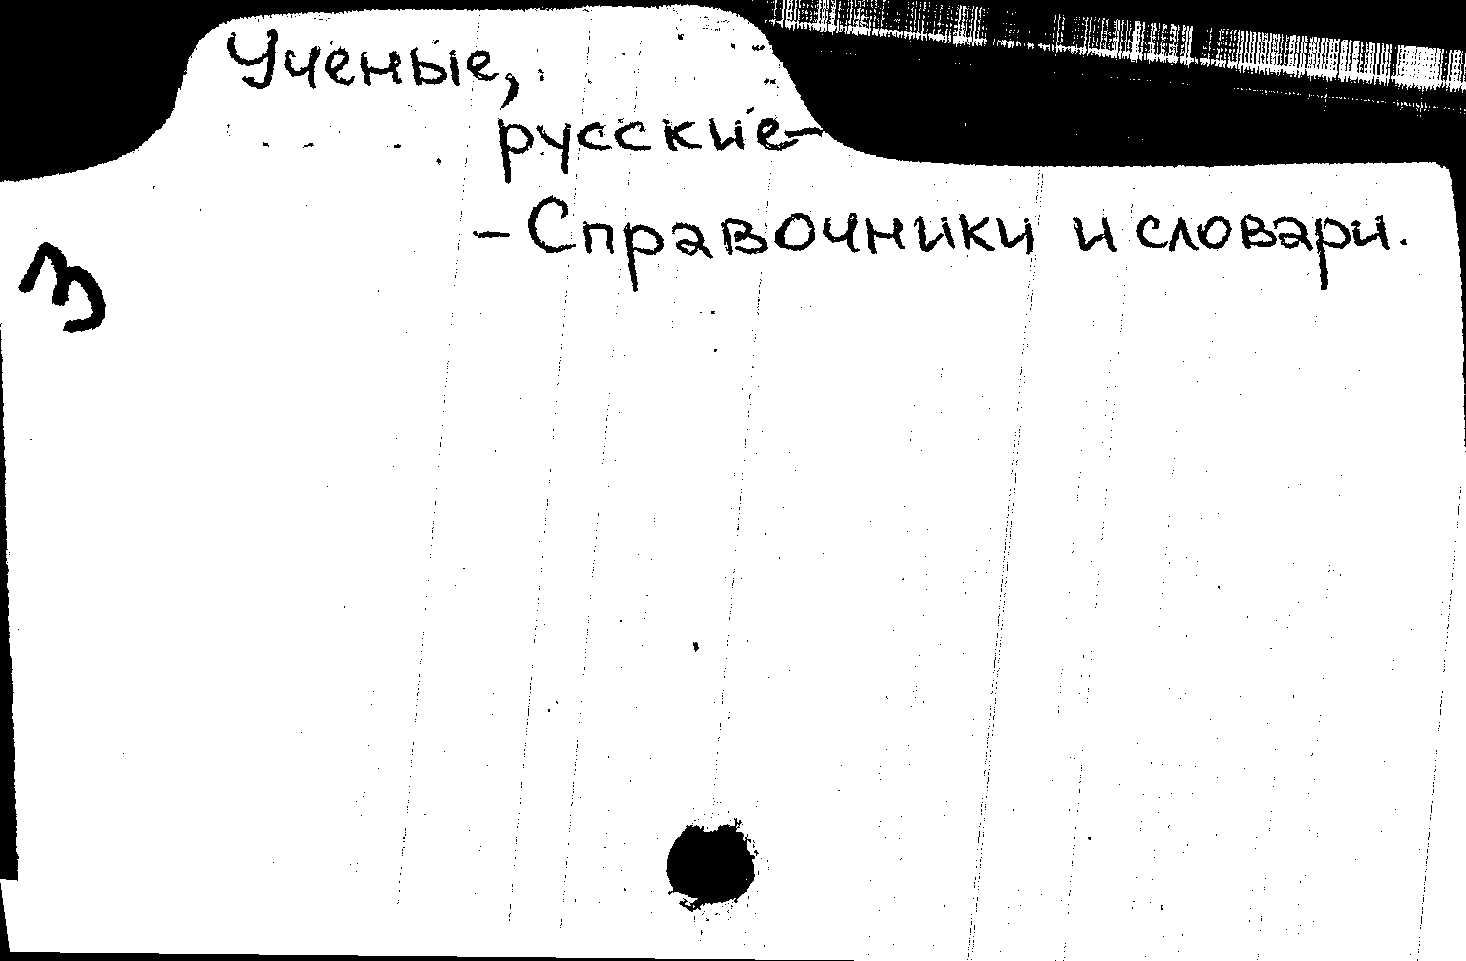 Ученые,
русские-
- Справочники и словари.